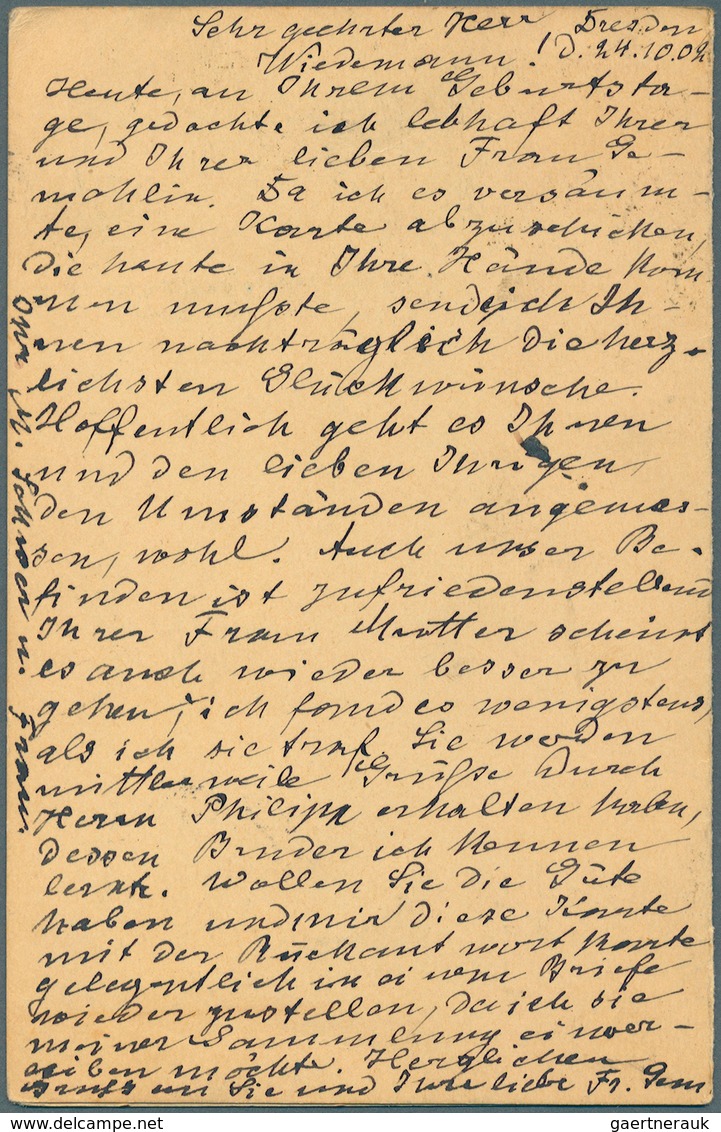 Sehr geehrter Herr Dresden
Wiedemann! d. 24.10.02
Heute, an Ihrem Geburtsta-
ge, gedachte ich lebhaft Ihrer
und Ihrer lieben Frau Ge-
mahlin. Da ich es versäum-
te, eine Karte abzuschicken,
die heute in Ihre Hände kom
men mußte, sende ich Ih-
nen nachträglich die herz-
lichsten Glückwünsche.
Hoffentlich geht es Ihnen
und den lieben Ihrigen,
den Umständen angemes-
sen, wohl. Auch unser Be-
finden ist zufriedenstellend
Ihrer Frau Mutter scheint
es auch wieder besser zu
gehen, ich fand es wenigstens,
als ich sie traf. Sie werden
mittlerweile Grüße durch
Herrn Philipp erhalten haben,
dessen Bruder ich kennen
lernte. Wollen Sie die Güte
haben und mir diese Karte
mit der Rückantwort Karte
gelegentlich in einem Briefe
wieder zustellen, da ich sie
meiner Sammlung einver-
leiben möchte. Herzlichen
Gruß an Sie und Ihre liebe Fr. Gem
M. u. Frau
gaertnerauk